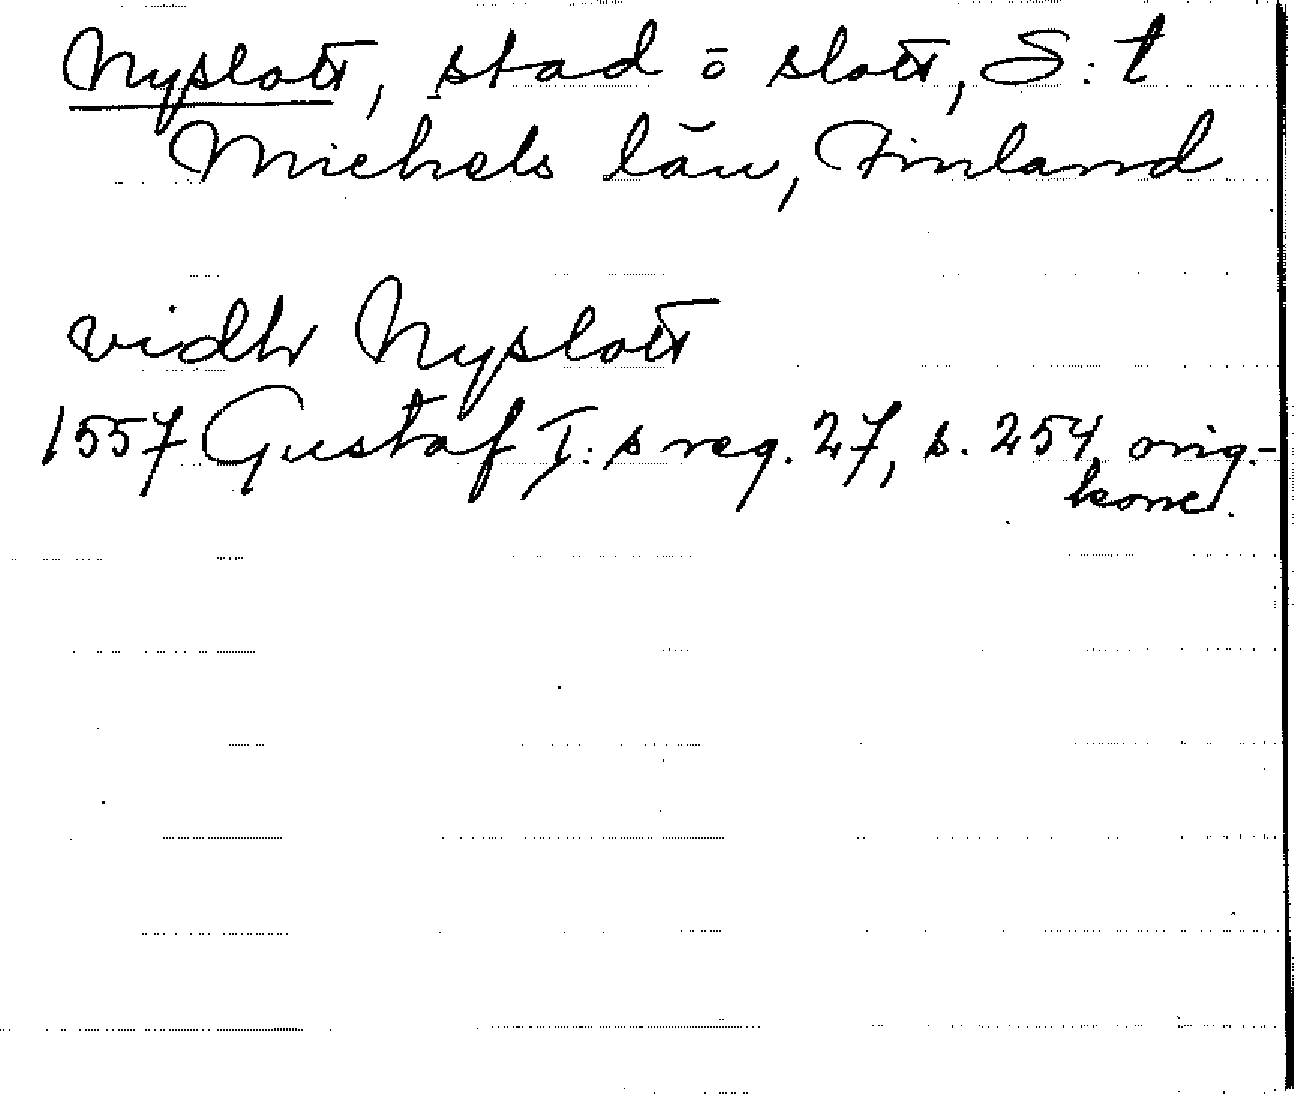 Nyslott, stad o slott, S:t
Michels län, Finland
vidh Nyslott
1557 Gustaf I:s reg. 27, s. 254, orig.-
konc.